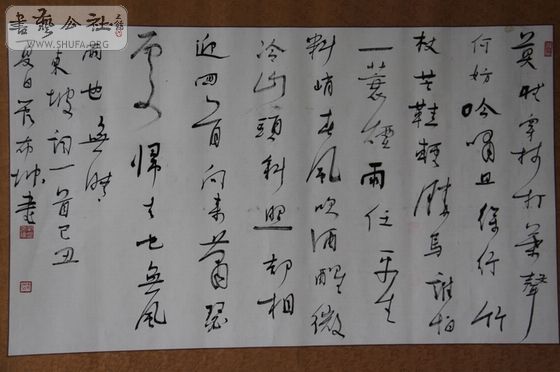 莫聽穿林打葉聲
何妨吟嘯且徐行竹
杖芒鞋輕勝馬誰怕
一蓑煙雨任平生
料峭春風吹酒醒微
冷山頭斜照却相
迎回首向來蕭瑟
處歸去也無風
雨也無晴
東坡詞一首己丑
夏日書
書藝公社
WWW.SHUFA.ORG